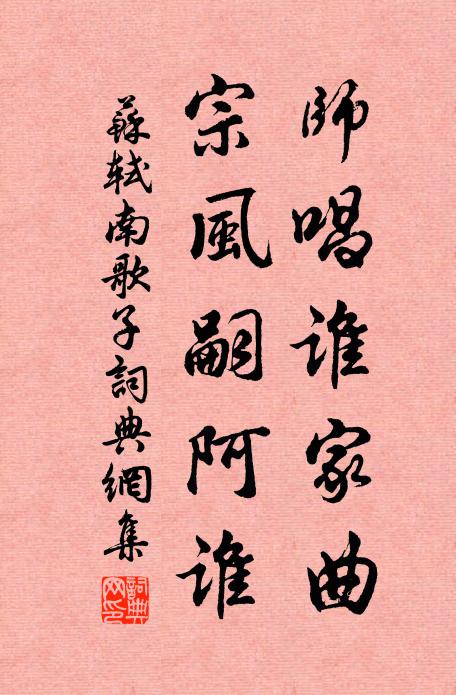 師唱誰家曲
宗風嗣阿誰
蘇軾南歌子詞典網集
詞典網印